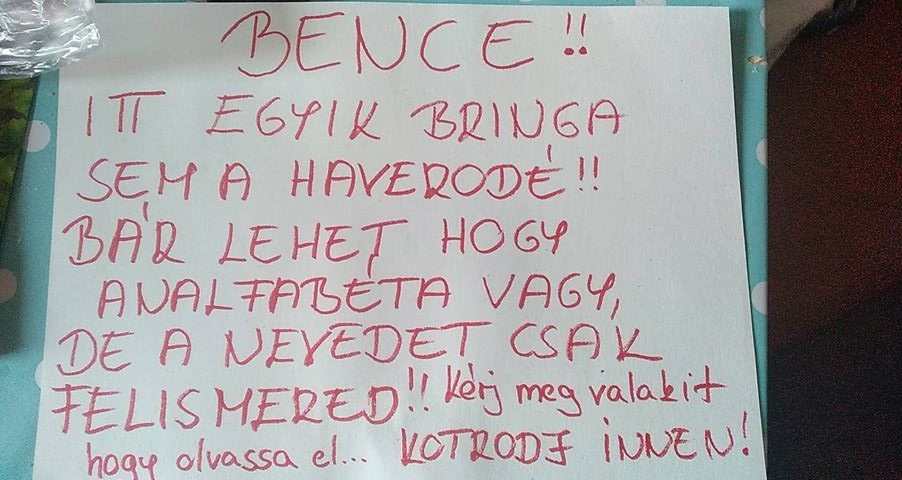 BENCE!!
ITT EGYIK BRINGA
SEM A HAVERODÉ!!
BÁR LEHET HOGY
ANALFABÉTA VAGY,
DE A NEVEDET CSAK
FELISMERED!! Kérj meg valakit
hogy olvassa el... KOTRÓDJ INNEN!